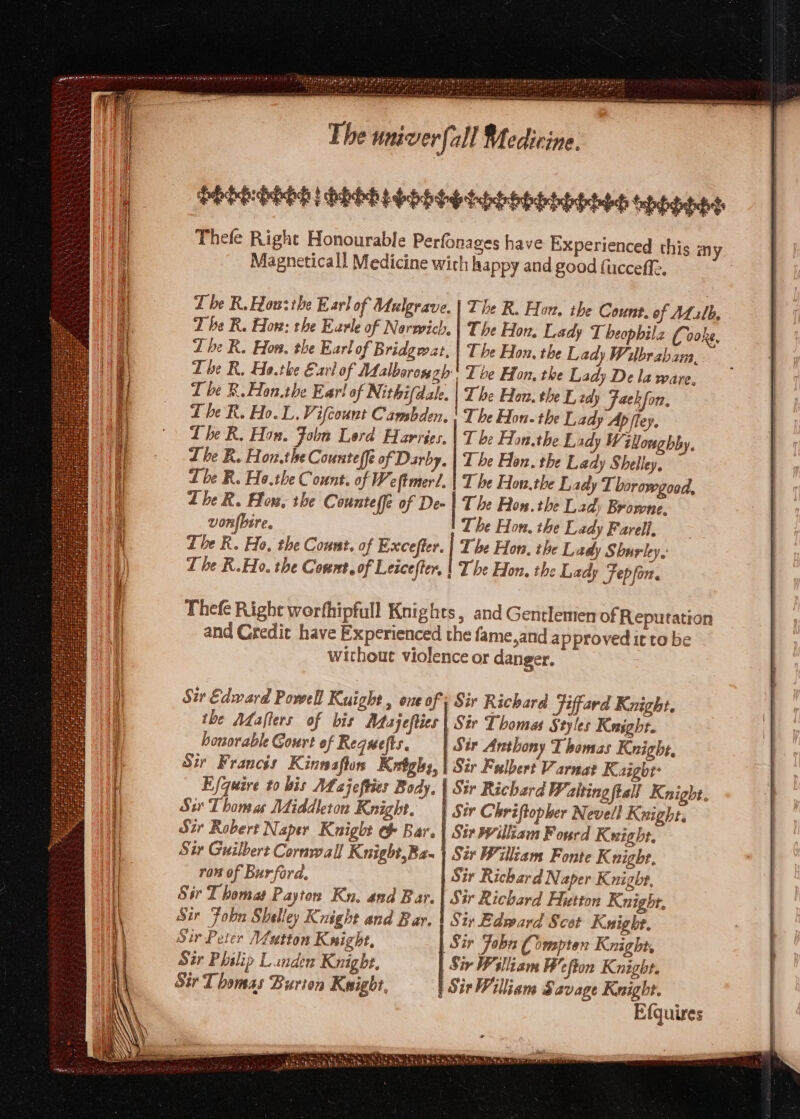 The univerſall Medicine.
Theſe Right Honourable Perſonages have Experienced this my
Magneticall Medicine with happy and good ſucceſſe.
The R. Hon: the Earl of Mulgrave.
The R. Hon: the Earle of Norwich.
The R. Hon. the Earl of Bridgwat.
The R. Ho. the Earl of Malborough
The R. Hon. the Earl of Nithiſdale.
The R. Ho. L. Viſcount Cambden.
The R. Hon. John Lord Harries.
The R. Hon. the Counteſſe of Darby.
The R. Ho. the Count. of Weſtmerl.
The R. Hon. the Counteſſe of De-
vonſhire.
The R. Ho. the Count. of Exceſter.
The R. Ho. the Count. of Leiceſter.
The R. Hon. the Count. of Mulb.
The Hon. Lady Theophila Cooke.
The Hon. the Lady Wilbraham.
The Hon. the Lady De la ware.
The Hon. the Lady Jackſon.
The Hon. the Lady Apſley.
The Hon. the Lady Willoughby.
The Hon. the Lady Shelley.
The Hon. the Lady Thorowgood.
The Hon. the Lady Browne.
The Hon. the Lady Farell.
The Hon. the Lady Shurley.
The Hon. the Lady Jepſon.
Theſe Right worſhipfull Knights, and Gentlemen of Reputation
and Credit have Experienced the ſame, and approved it to be
without violence or danger.
Sir Edward Powell Knight, one of
the Maſters of his Majeſties
honorable Court of Requeſts.
Sir Francis Kinnaſton Knight,
Eſquire to his Majeſties Body.
Sir Thomas Middleton Knight.
Sir Robert Naper Knight & Bar.
Sir Guilbert Cornwall Knight, Ba-
ron of Burford.
Sir Thomas Payton Kn. and Bar.
Sir John Shelley Knight and Bar.
Sir Peter Mutton Knight.
Sir Philip Landen Knight.
Sir Thomas Burton Knight.
Sir Richard Fiffard Knight.
Sir Thomas Styles Knight.
Sir Anthony Thomas Knight.
Sir Fulbert Varnat Knight.
Sir Richard Waltingſtall Knight.
Sir Chriſtopher Nevell Knight.
Sir William Fourd Knight.
Sir William Fonte Knight.
Sir Richard Naper Knight.
Sir Richard Hutton Knight.
Sir Edward Scot Knight.
Sir John Compten Knight.
Sir William Weſton Knight.
Sir William Savage Knight.
Eſquires